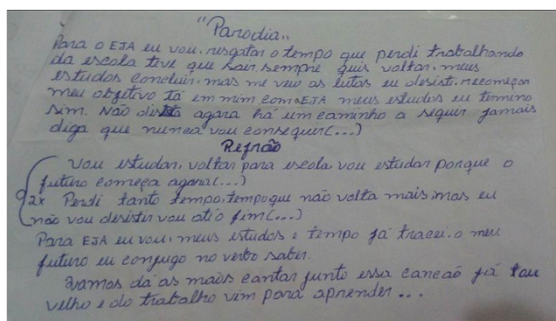 "Parodia"
Para o EJA eu vou, resgatar o tempo que perdi trabalhando
da escola tive que sair, sempre quis voltar, meus
estudos concluir, mas me veio as lutas eu desisti, recomeçar
meu objetivo tá em mim com a EJA meus estudos eu termino
sim. Não desista agora há um caminho a seguir jamais
diga que nunca vou conseguir(...)
Refrão
Vou estudar, voltar para escola vou estudar porque o
futuro começa agora(...)
2x Perdi tanto tempo, tempo que não volta mais, mas eu
não vou desistir vou até o fim(...)
Para EJA eu vou, meus estudos e tempo já tracei, o meu
futuro eu conjugo no verbo saber.
Vamos dá as mãos cantar junto essa canção já tou
velho e do trabalho vim para aprender...